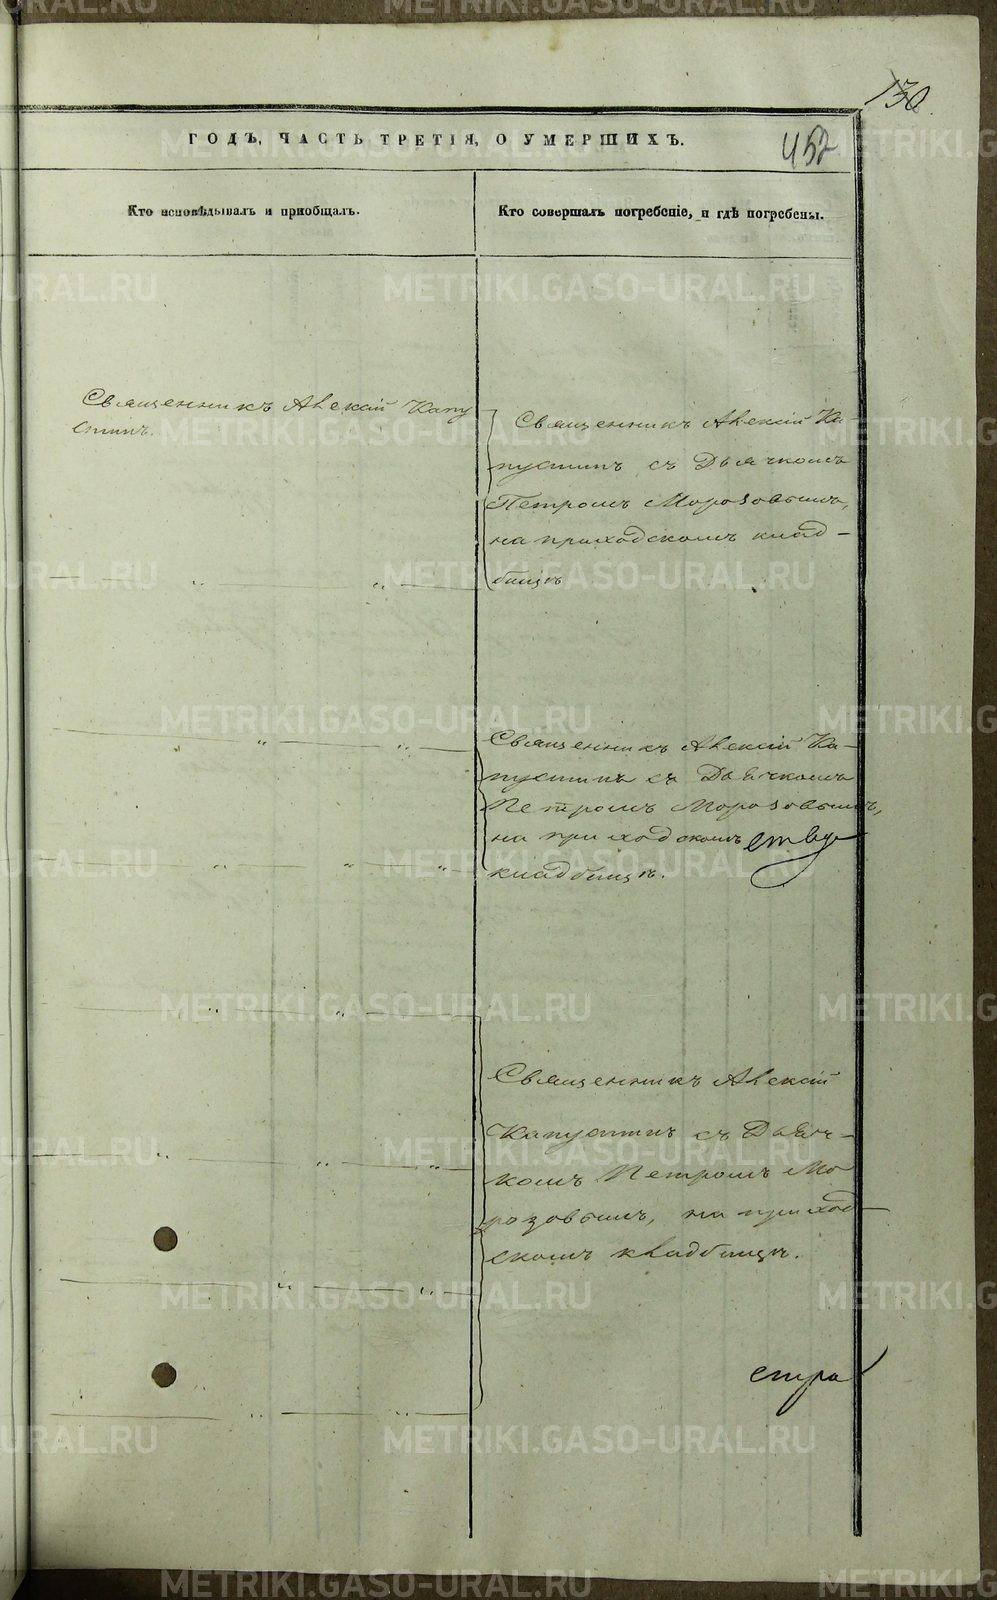 130.
ГОДЪ, ЧАСТЬ ТРЕТІЯ, О УМЕРШИХЪ.
452
Кто исповѣдывалъ и пріобщалъ.
Кто совершалъ погребеніе, и гдѣ погребены.
Священникъ Алексій Капу
стинъ.
Священникъ Алексій Ка-
пустинъ съ Дьячкомъ
Петромъ Морозовымъ,
на приходскомъ клад-
бищѣ
Священникъ Алексій Ка-
пустинъ съ Дьячкомъ
Петромъ Морозовымъ,
на приходскомъ
кладбищѣ.
Священникъ Алексій
Капустинъ съ Дьяч-
комъ Петромъ Мо
розовымъ, на приход-
скомъ кладбищѣ.
METRIKI.GASO-URAL.RU